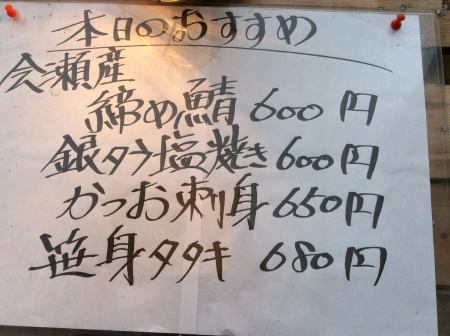 本日のおすすめ
会瀬産
締め鯖 600円
銀ダラ塩焼き 600円
かつお刺身 650円
笹身タタキ 680円